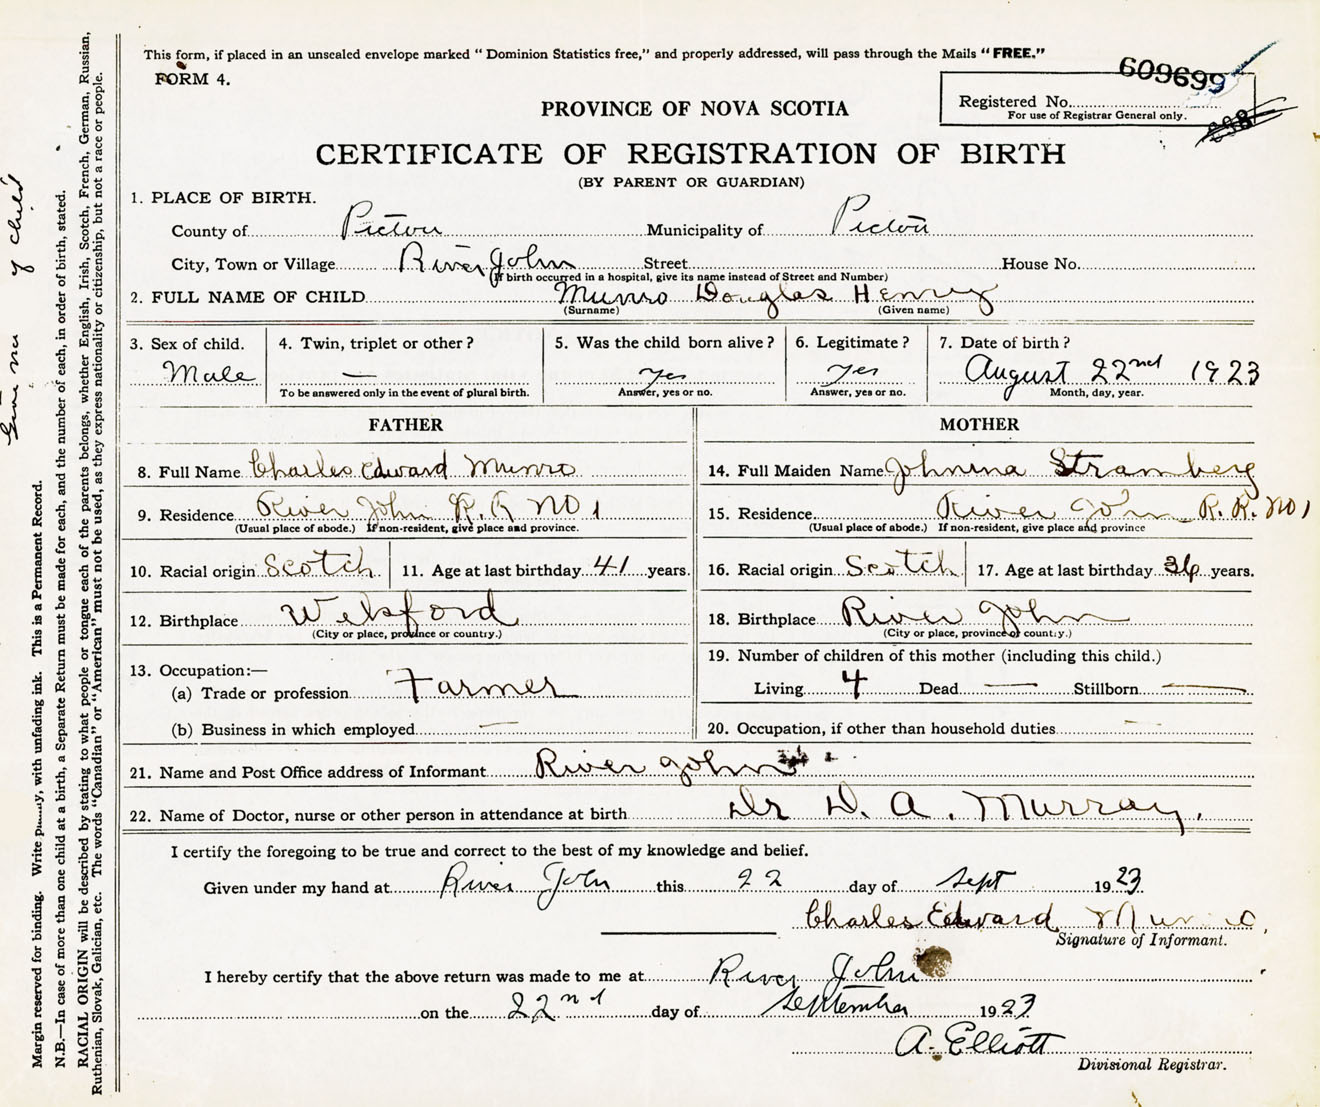 This form, if placed in an unsealed envelope marked " Dominion Statistics free," and properly addressed, will pass through the Mails "FREE."
FORM 4.
609699
Registered No.
For use of Registrar General only.
PROVINCE OF NOVA SCOTIA
CERTIFICATE OF REGISTRATION OF BIRTH
(BY PARENT OR GUARDIAN)
1. PLACE OF BIRTH.
County of Pictou Municipality of Pictou
City, Town or Village River John Street House No.
(If birth occurred in a hospital, give its name instead of Street and Number)
2. FULL NAME OF CHILD Munro Douglas Henry
(Surname) (Given name)
3. Sex of child. 4. Twin, triplet or other? 5. Was the child born alive? 6. Legitimate? 7. Date of birth?
Male — yes yes August 22nd 1923
To be answered only in the event of plural birth. Answer, yes or no. Answer, yes or no. Month, day, year.
FATHER MOTHER
8. Full Name Charles Edward Munro 14. Full Maiden Name Johnina Stramberg
9. Residence River John R. R NO 1 15. Residence River John R. R. NO 1
(Usual place of abode.) If non-resident, give place and province. (Usual place of abode.) If non-resident, give place and province
10. Racial origin Scotch 11. Age at last birthday 41 years. 16. Racial origin Scotch 17. Age at last birthday 36 years.
12. Birthplace Welsford 18. Birthplace River John
(City or place, province or country.) (City or place, province or country.)
13. Occupation:— 19. Number of children of this mother (including this child.)
(a) Trade or profession Farmer Living 4 Dead — Stillborn —
(b) Business in which employed — 20. Occupation, if other than household duties —
21. Name and Post Office address of Informant River John
22. Name of Doctor, nurse or other person in attendance at birth Dr D. A. Murray.
I certify the foregoing to be true and correct to the best of my knowledge and belief.
Given under my hand at River John this 22 day of Sept 1923
Charles Edward Munro.
Signature of Informant.
I hereby certify that the above return was made to me at River John
on the 22nd day of September 1923
A. Elliott
Divisional Registrar.
Margin reserved for binding. Write with unfading ink. This is a Permanent Record.
N.B.—In case of more than one child at a birth, a Separate Return must be made for each, and the number of each, in order of birth, stated.
RACIAL ORIGIN will be described by stating to what people or tongue each of the parents belongs, whether English, Irish, Scotch, French, German, Russian,
Ruthenian, Slovak, Galician, etc. The words "Canadian" or "American" must not be used, as they express nationality or citizenship, but not a race or people.
of child